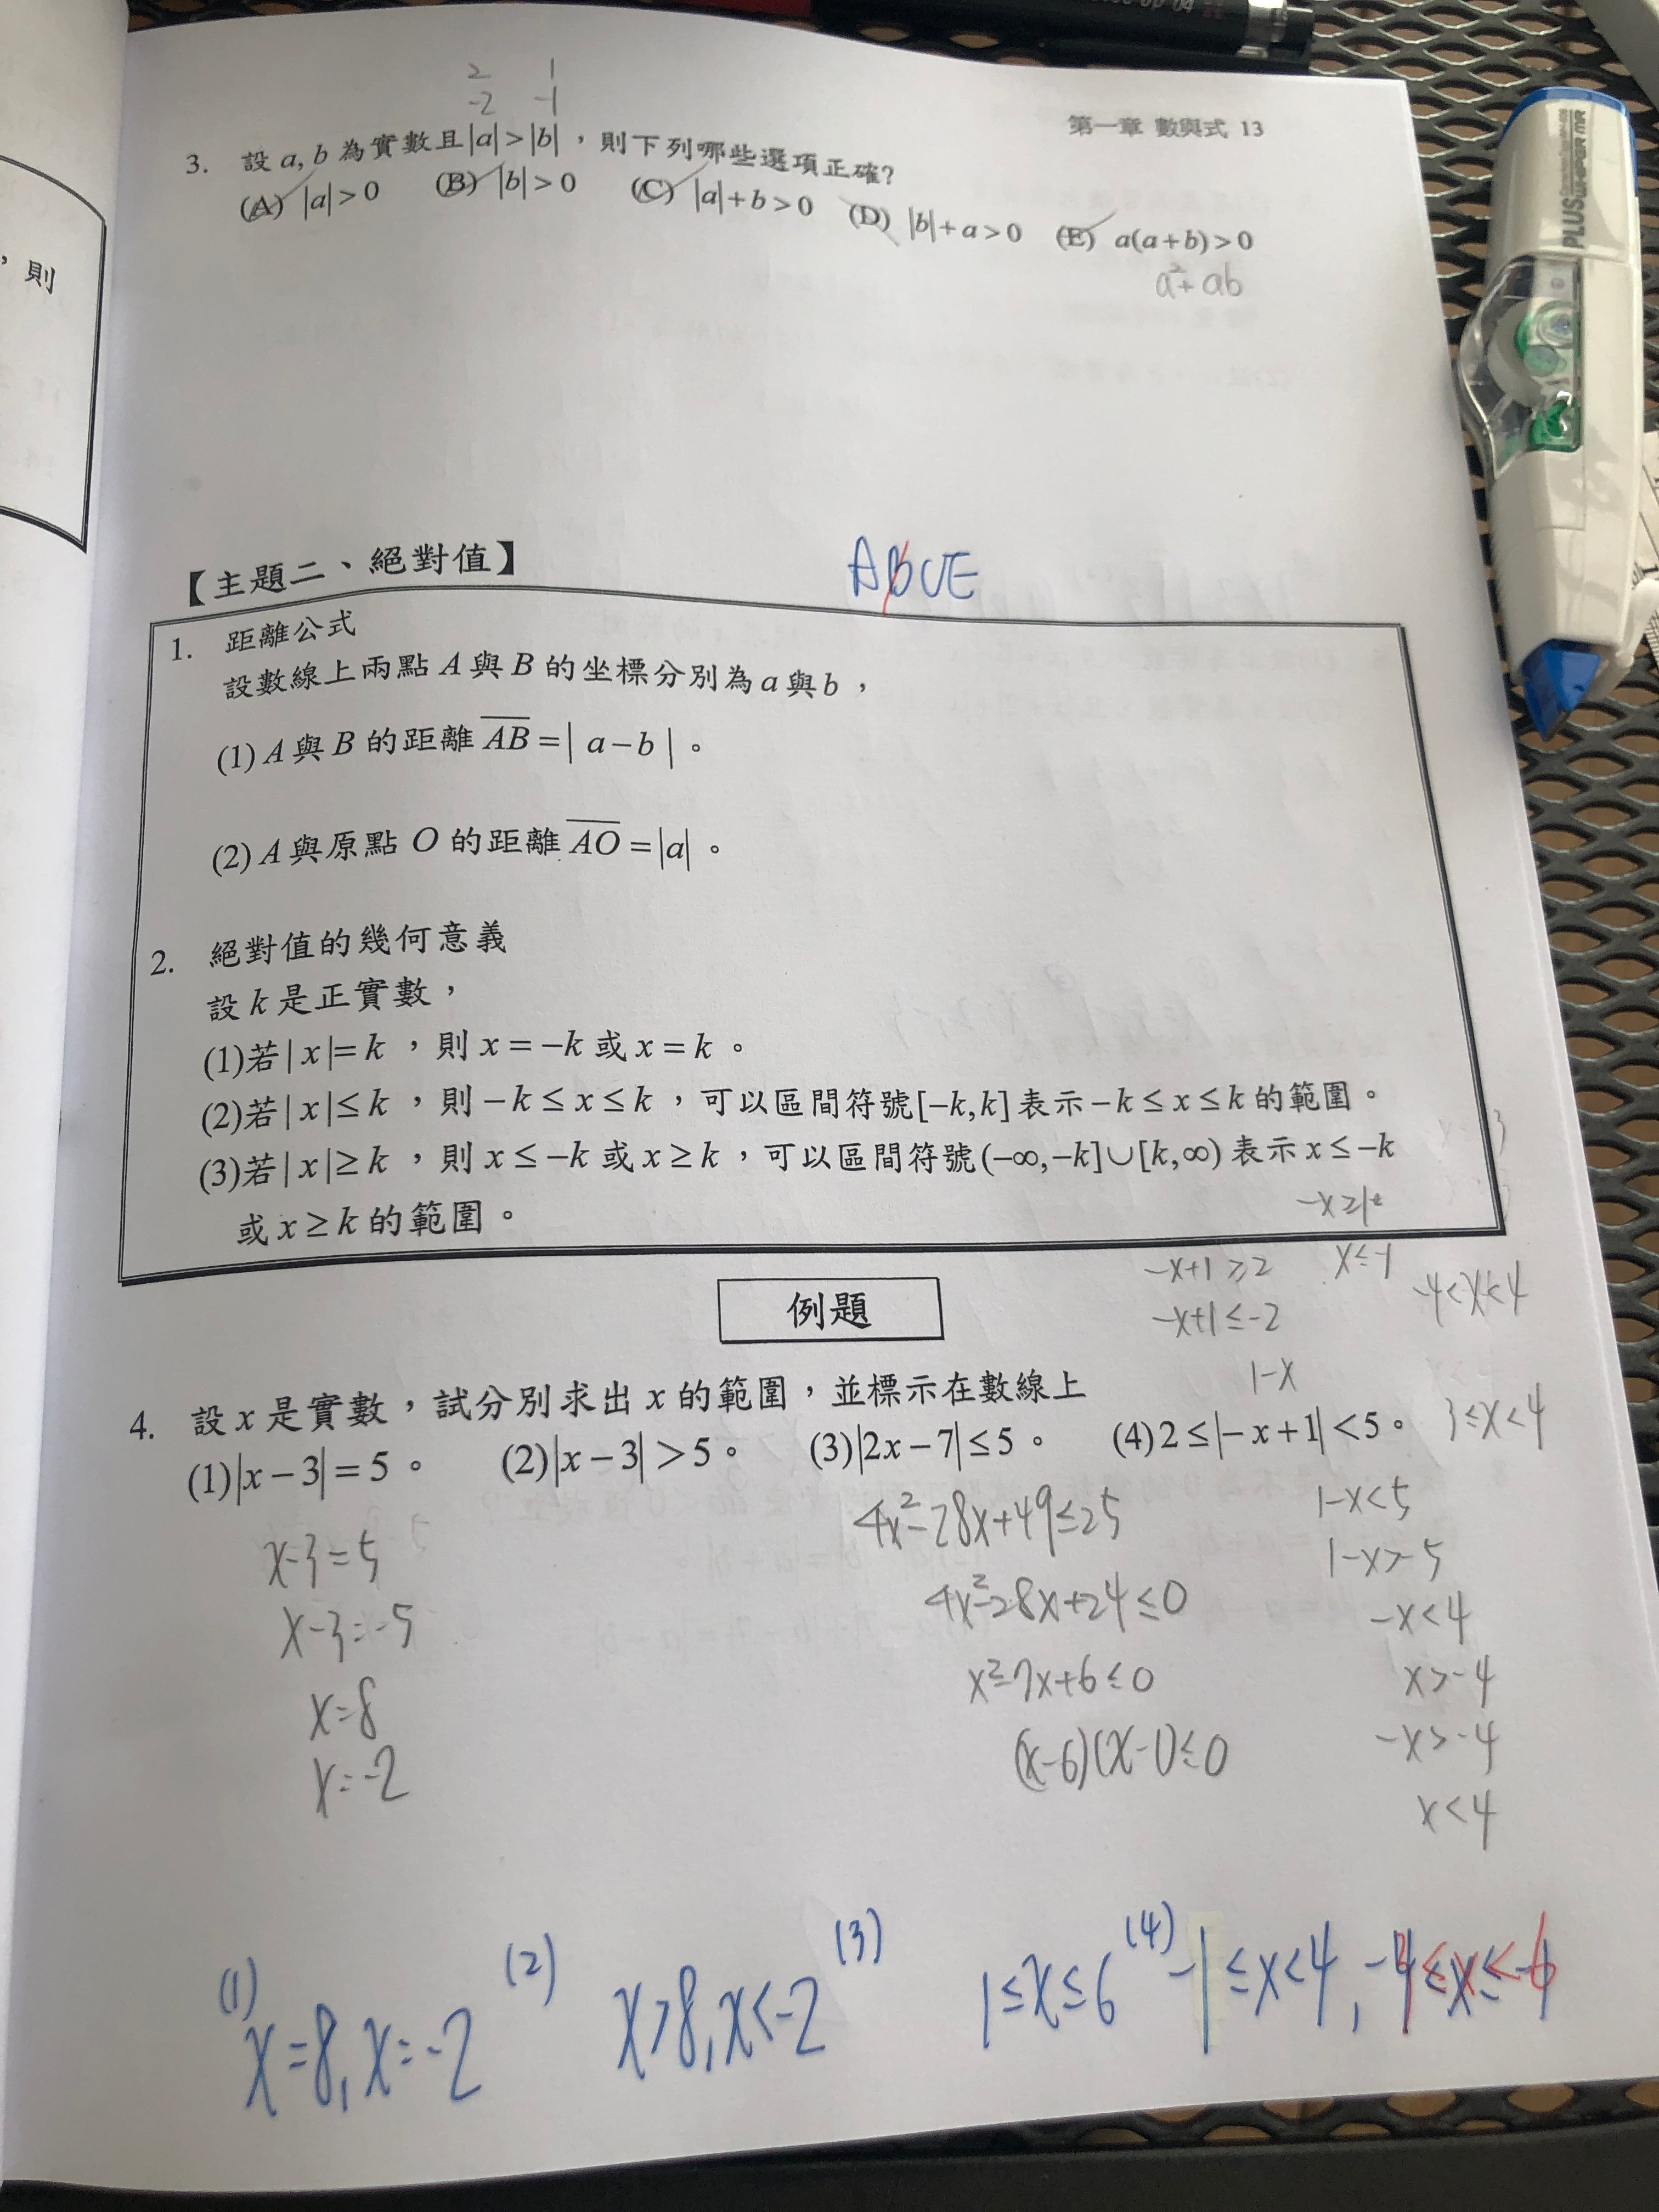 第一章 數與式 13
2 1
-2 -1
3. 設 a, b 為實數且|a|>|b|，則下列哪些選項正確?
(A) |a|>0 (B) |b|>0 (C) |a|+b>0 (D) |b|+a>0 (E) a(a+b)>0
a²+ab
，則
PLUS
WHIPER MR
【主題二、絕對值】
ABCE
1. 距離公式
設數線上兩點 A 與 B 的坐標分別為 a 與 b，
(1) A 與 B 的距離 \overline{AB}=| a-b |。
(2) A 與原點 O 的距離 \overline{AO}=|a|。
2. 絕對值的幾何意義
設 k 是正實數，
(1)若| x |= k ，則 x = -k 或 x = k 。
(2)若| x |≤ k ，則 -k ≤ x ≤ k ，可以區間符號[-k,k] 表示 -k ≤ x ≤ k 的範圍。
(3)若| x |≥ k ，則 x ≤ -k 或 x ≥ k ，可以區間符號(-∞,-k]∪[k,∞) 表示 x ≤ -k
或 x ≥ k 的範圍。
-x+1≥2
x≤-1
-4<x<4
-x+1≤-2
1-x
例題
4. 設 x 是實數，試分別求出 x 的範圍，並標示在數線上
(1)|x-3|=5。 (2)|x-3|>5。 (3)|2x-7|≤5。 (4)2≤|-x+1|<5。
3≤x<4
x-3=5
x-3=-5
x=8
x=-2
4x²-28x+49≤25
4x²-28x+24≤0
x²-7x+6≤0
(x-6)(x-1)≤0
1-x<5
1-x>-5
-x<4
x>-4
-x>-4
x<4
(1) x=8, x=-2
(2) x>8, x<-2
(3) 1≤x≤6
(4) -1≤x<4,